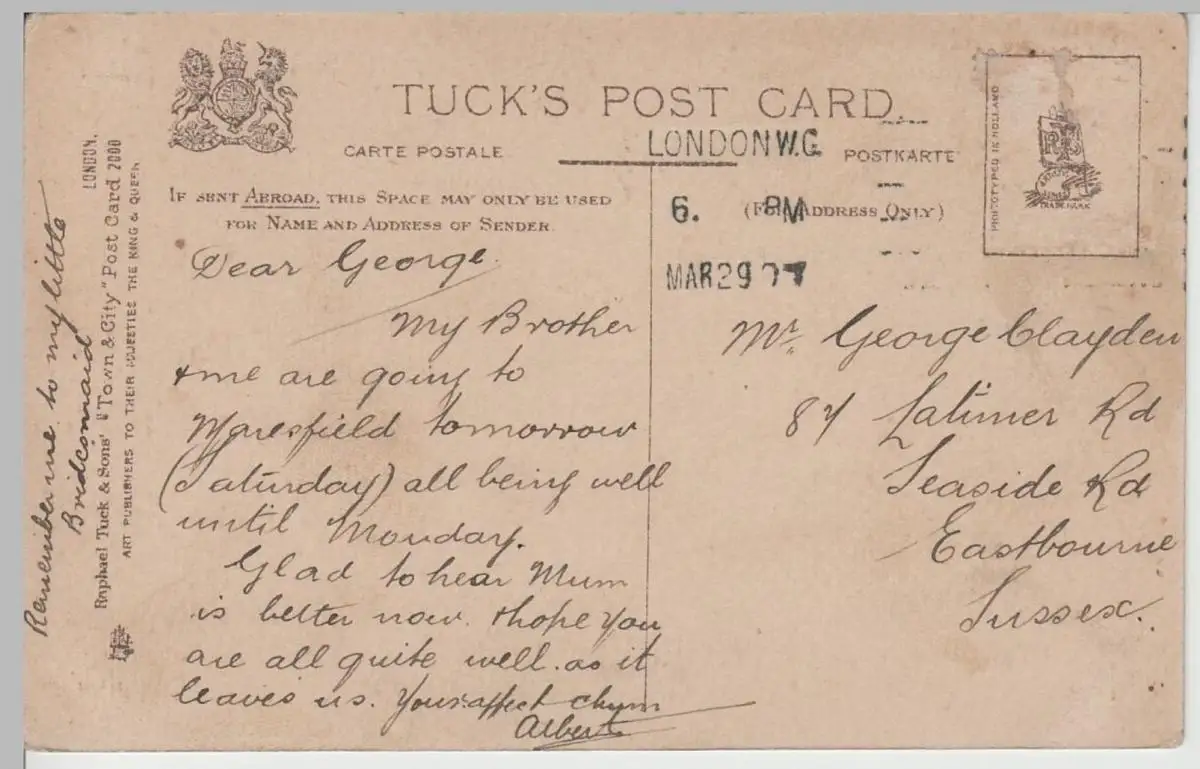 TUCK'S POST CARD.
CARTE POSTALE
POSTKARTE
LONDON W.C.
6. PM
MAR 29 07
IF SENT ABROAD, THIS SPACE MAY ONLY BE USED
FOR NAME AND ADDRESS OF SENDER.
(FOR ADDRESS ONLY)
PHOTOTYPED IN HOLLAND
TRADE MARK
Dear George.
My Brother
& me are going to
Maresfield tomorrow
(Saturday) all being well
until Monday.
Glad to hear Mum
is better now. & hope you
are all quite well. as it
leaves us. Your affect chum
Albert
Mr. George Clayden
87 Latimer Rd
Seaside Rd
Eastbourne
Sussex.
Remember me to my little
Bridesmaid
LONDON.
Raphael Tuck & Sons' "Town & City" Post Card 2000
ART PUBLISHERS TO THEIR MAJESTIES THE KING & QUEEN